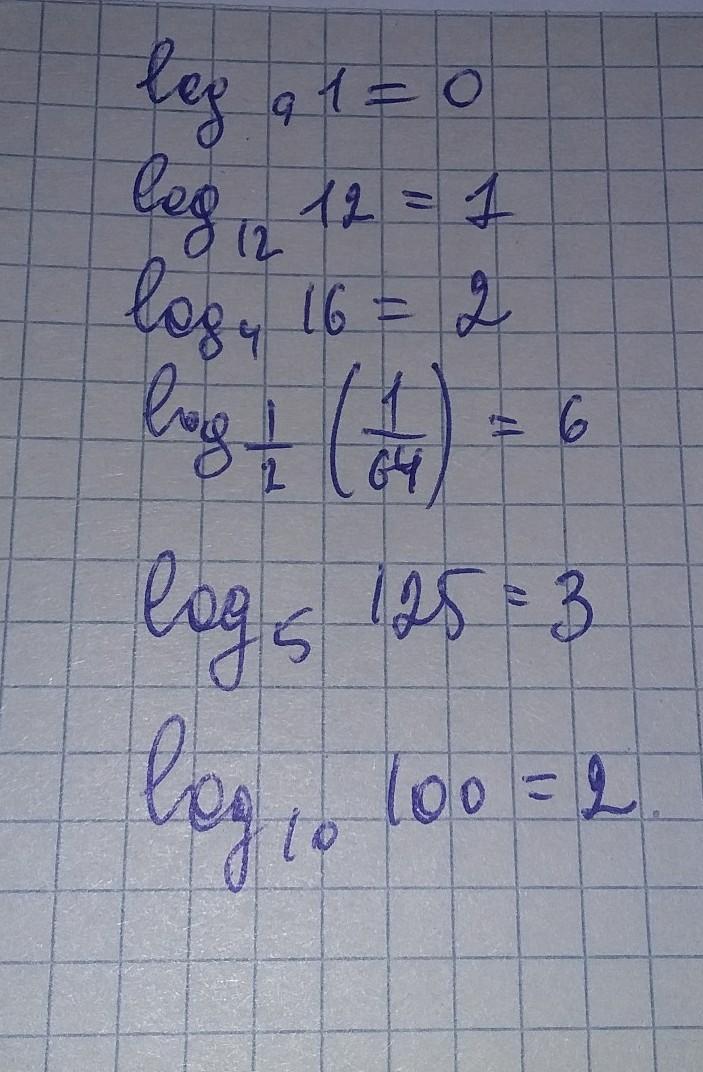 log₉ 1 = 0
log₁₂ 12 = 1
log₄ 16 = 2
log 1/2 (1/64) = 6
log₅ 125 = 3
log₁₀ 100 = 2.